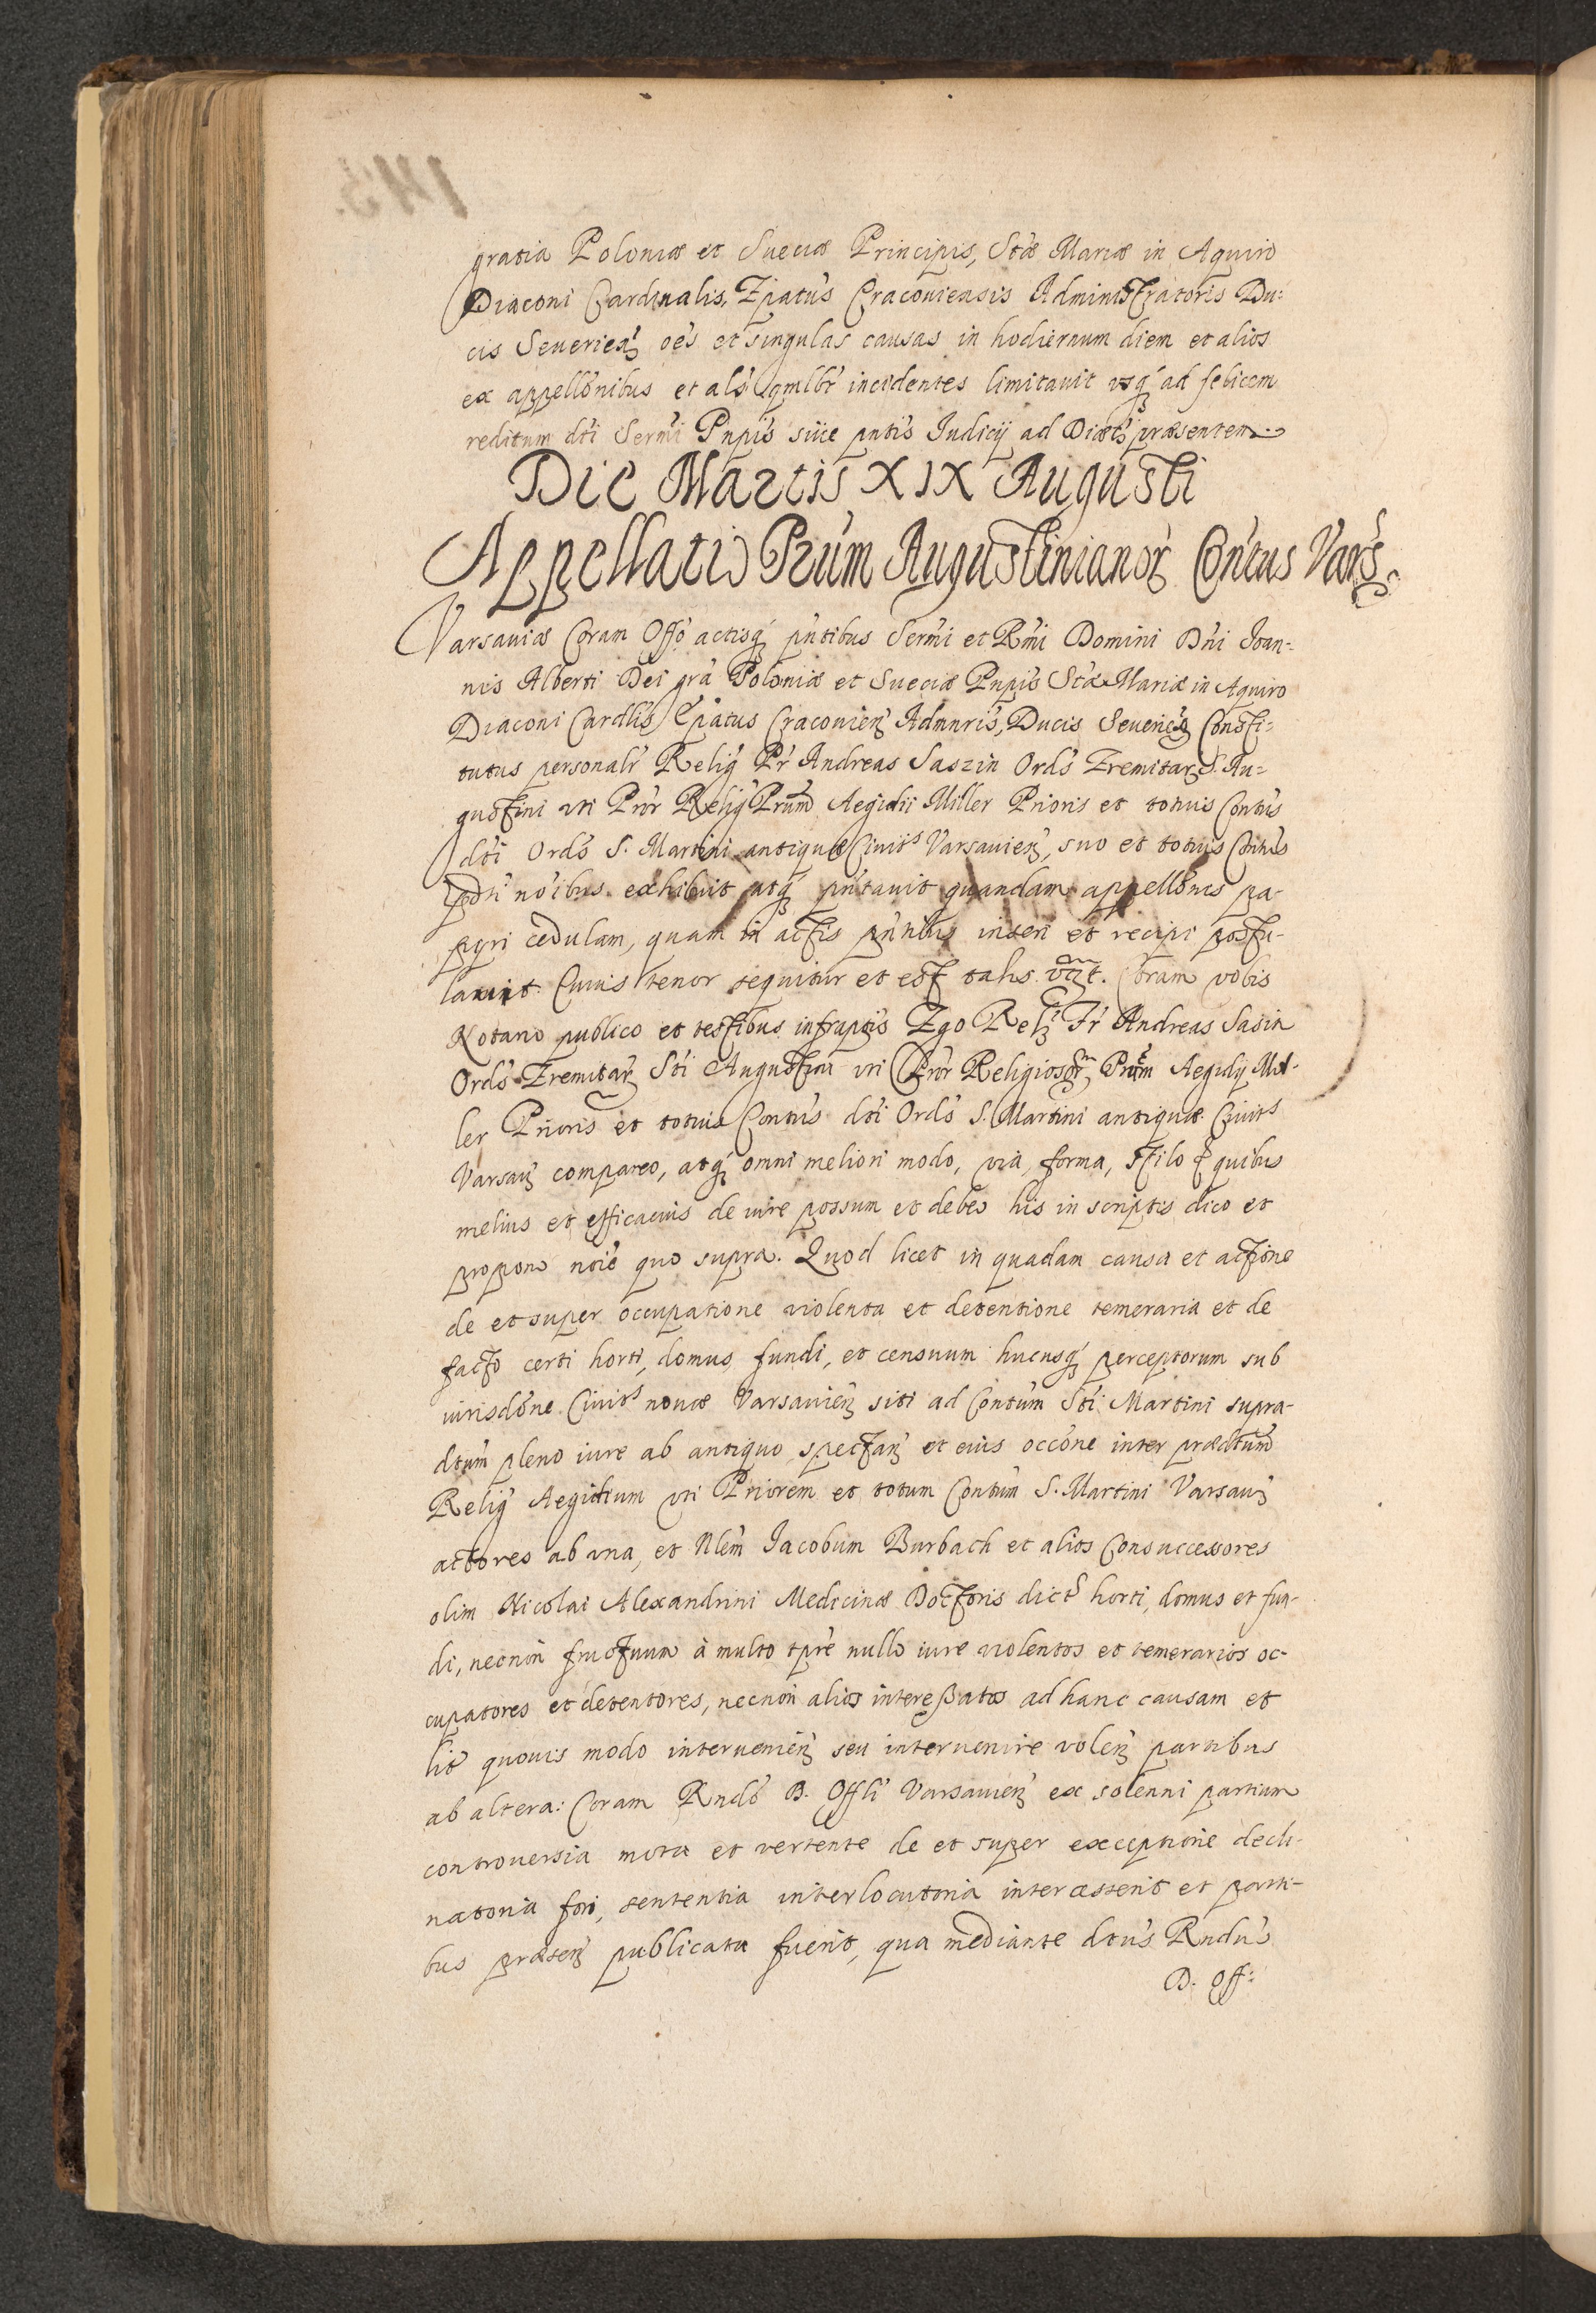 gratia Poloniæ et Sueciæ Principis, Stæ Mariæ in Aquiro
Diaconi Cardinalis, Epatus Cracouiensis Administratoris Du:
cis Seuerien oes et singulas causas in hodiernum diem et alios
ex appellonibus et als qmlbt incidentes limitauit vsq ad felicem
reditum dti Sermi Pnpis siue pntis Judicij ad Diæt præsentem
Die Martis XIX Augusti
Appellatio Prum Augustinianor Contus Vars
Varsauiæ Coram Offo actisq pntibus Sermi et Rmi Domini Dni Ioan-
nis Alberti Dei gra Poloniæ et Sueciæ Pnpis Stæ Mariæ in Aquiro
Diaconi Cardlis Epatus Cracouien Admnris, Ducis Seuerien Consti-
tutus personalr Relig Pr Andreas Saszin Ords Eremitar S. Au-
gustini uti Pror Relig Prum Aegidii Miller Prioris et totius Contus
dti Ords S. Martini antiquæ Ciuits Varsauien, suo et totius Contus
pdti noibus exhibuit atq pntauit quandam appellonis pa-
pyri cedulam, quam in actis pntibus inseri et recipi postu-
lauit. Cuius tenor sequitur et est talis vzt. Coram vobis
Notario publico et testibus infraptis Ego Rel Fr Andreas Sasin
Ords Eremitar Sti Augustini uti Pror Religiosor Prum Aegidij Mil-
ler Prioris et totius Contus dti Ords S. Martini antiquæ Ciuits
Varsau compareo, atq omni meliori modo, via, forma, stilo & quibus
melius et efficacius de iure possum et debeo his in scriptis dico et
propono noie quo supra. Quod licet in quadam causa et actione
de et super occupatione violenta et detentione temeraria et de
facto certi horti, domus, fundi, et censuum hucusq perceptorum sub
iurisdone Ciuits nouæ Varsauien siti ad Contum Sti Martini supra-
dtum pleno iure ab antiquo spectan et eius occone inter prædtum
Relig Aegidium uti Priorem et totum Contum S. Martini Varsau
actores ab vna, et Nlem Jacobum Burbach et alios Consuccessores
olim Nicolai Alexandrini Medicinæ Doctoris dict horti, domus et fun-
di, necnon fructuum à multo tpre nullo iure violentos et temerarios oc-
cupatores et detentores, necnon alios intereßatos ad hanc causam et
lite quouis modo interuenien seu interuenire volen partibus
ab altera: Coram Rndo D. Offli Varsauien ex solenni partium
controuersia mota et vertente de et super exceptione decli-
natoria fori, sententia interlocutoria intercesserit et parti-
bus præsen publicata fuerit, qua mediante dtus Rndus
D. Off: